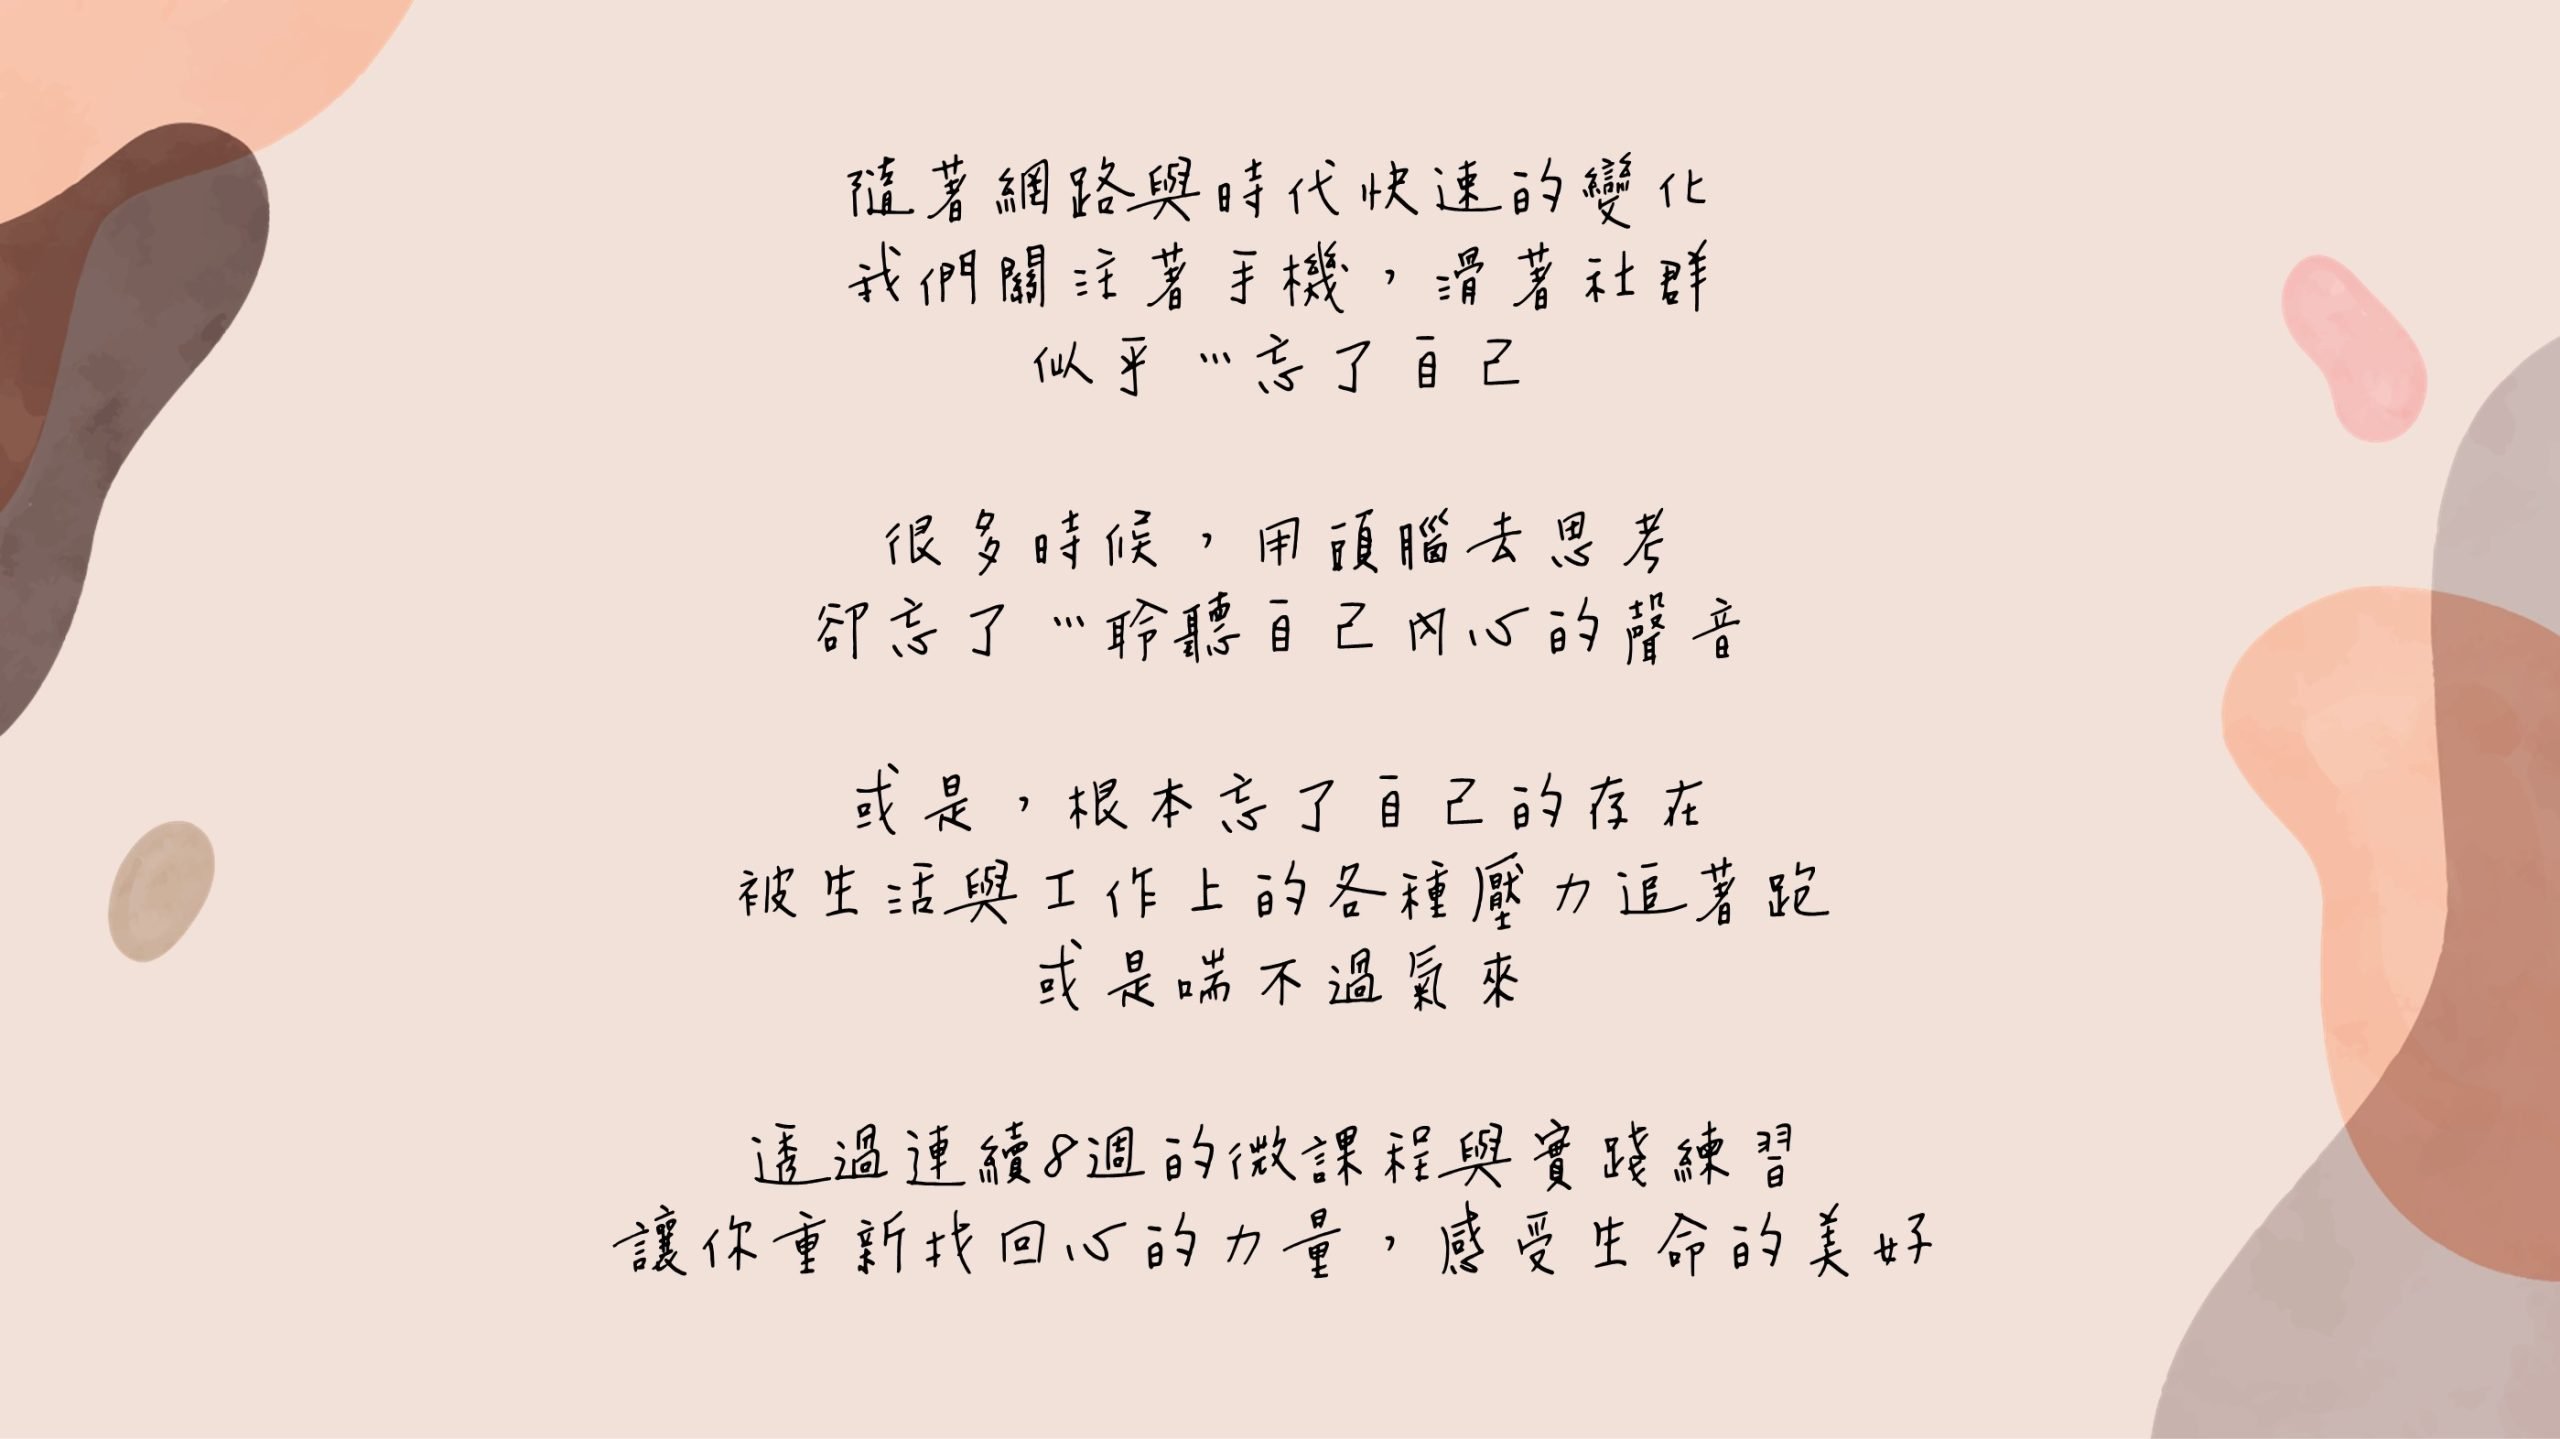 隨著網路與時代快速的變化
我們關注著手機，滑著社群
似乎…忘了自己
很多時候，用頭腦去思考
卻忘了…聆聽自己內心的聲音
或是，根本忘了自己的存在
被生活與工作上的各種壓力追著跑
或是喘不過氣來
透過連續8週的微課程與實踐練習
讓你重新找回心的力量，感受生命的美好